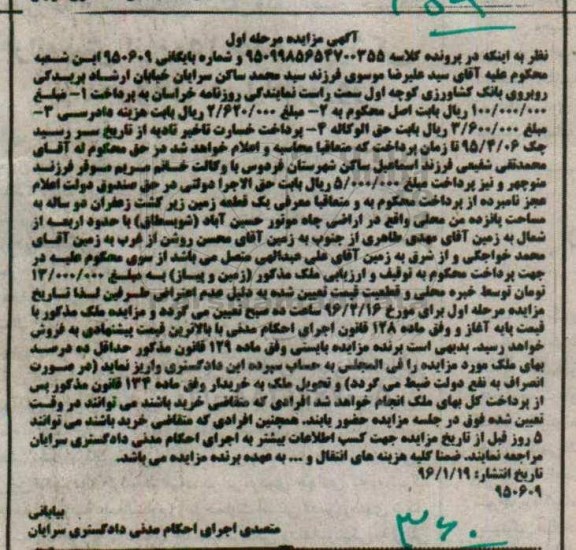 آگهی مزایده مرحله اول
نظر به اینکه در پرونده کلاسه ۹۵۰۹۹۸۵۶۵۴۷۰۰۳۵۵ و شماره بایگانی ۹۵۰۶۰۹ این شعبه
محکوم علیه آقای سید علیرضا موسوی فرزند سید محمد ساکن سرایان خیابان ارشاد بریدگی
روبروی بانک کشاورزی کوچه اول سمت راست نمایندگی روزنامه خراسان به پرداخت ۱- مبلغ
۱۰۰/۰۰۰/۰۰۰ ریال بابت اصل محکوم به ۲- مبلغ ۲/۶۲۰/۰۰۰ ریال بابت هزینه دادرسی ۳-
مبلغ ۳/۶۰۰/۰۰۰ ریال بابت حق الوکاله ۴- پرداخت خسارت تاخیر تادیه از تاریخ سر رسید
چک ۹۵/۴/۰۶ تا زمان پرداخت که متعاقبا محاسبه و اعلام خواهد شد در حق محکوم له آقای
محمدتقی شفیعی فرزند اسماعیل ساکن شهرستان فردوس با وکالت خانم مریم موقر فرزند
منوچهر و نیز پرداخت مبلغ ۵/۰۰۰/۰۰۰ ریال بابت حق الاجرا دولتی در حق صندوق دولت اعلام
عجز نامبرده از پرداخت محکوم به و متعاقبا معرفی یک قطعه زمین زیر کشت زعفران دو ساله به
مساحت پانزده من محلی واقع در اراضی چاه موتور حسین آباد (شوبسطاق) با حدود اربعه از
شمال به زمین آقای مهدی طاهری از جنوب به زمین آقای محسن روشن از غرب به زمین آقای
محمد خواجگی و از شرق به زمین آقای علی عبدالهی متصل می باشد از سوی محکوم علیه در
جهت پرداخت محکوم به توقیف و ارزیابی ملک مذکور (زمین و پیاز) به مبلغ ۱۳/۰۰۰/۰۰۰
تومان توسط خبره محلی و قطعیت قیمت تعیین شده به دلیل عدم اعتراض طرفین لذا تاریخ
مزایده مرحله اول برای مورخ ۹۶/۲/۱۶ ساعت ده صبح تعیین می گردد و مزایده ملک مذکور با
قیمت پایه آغاز و وفق ماده ۱۲۸ قانون اجرای احکام مدنی با بالاترین قیمت پیشنهادی به فروش
خواهد رسید. بدیهی است برنده مزایده بایستی وفق ماده ۱۲۹ قانون مذکور حداقل ده درصد
بهای ملک مورد مزایده را فی المجلس به حساب سپرده این دادگستری واریز نماید (در صورت
انصراف به نفع دولت ضبط می گردد) و تحویل ملک به خریدار وفق ماده ۱۳۴ قانون مذکور پس
از پرداخت کل بهای ملک انجام خواهد شد افرادی که متقاضی خرید باشند می توانند در وقت
تعیین شده فوق در جلسه مزایده حضور یابند. همچنین افرادی که متقاضی خرید باشند می توانند
۵ روز قبل از تاریخ مزایده جهت کسب اطلاعات بیشتر به اجرای احکام مدنی دادگستری سرایان
مراجعه نمایند. ضمنا کلیه هزینه های انتقال و ... به عهده برنده مزایده می باشد.
تاریخ انتشار: ۹۶/۱/۱۹
۹۵۰۶۰۹
بیابانی
متصدی اجرای احکام مدنی دادگستری سرایان
۳۶۰